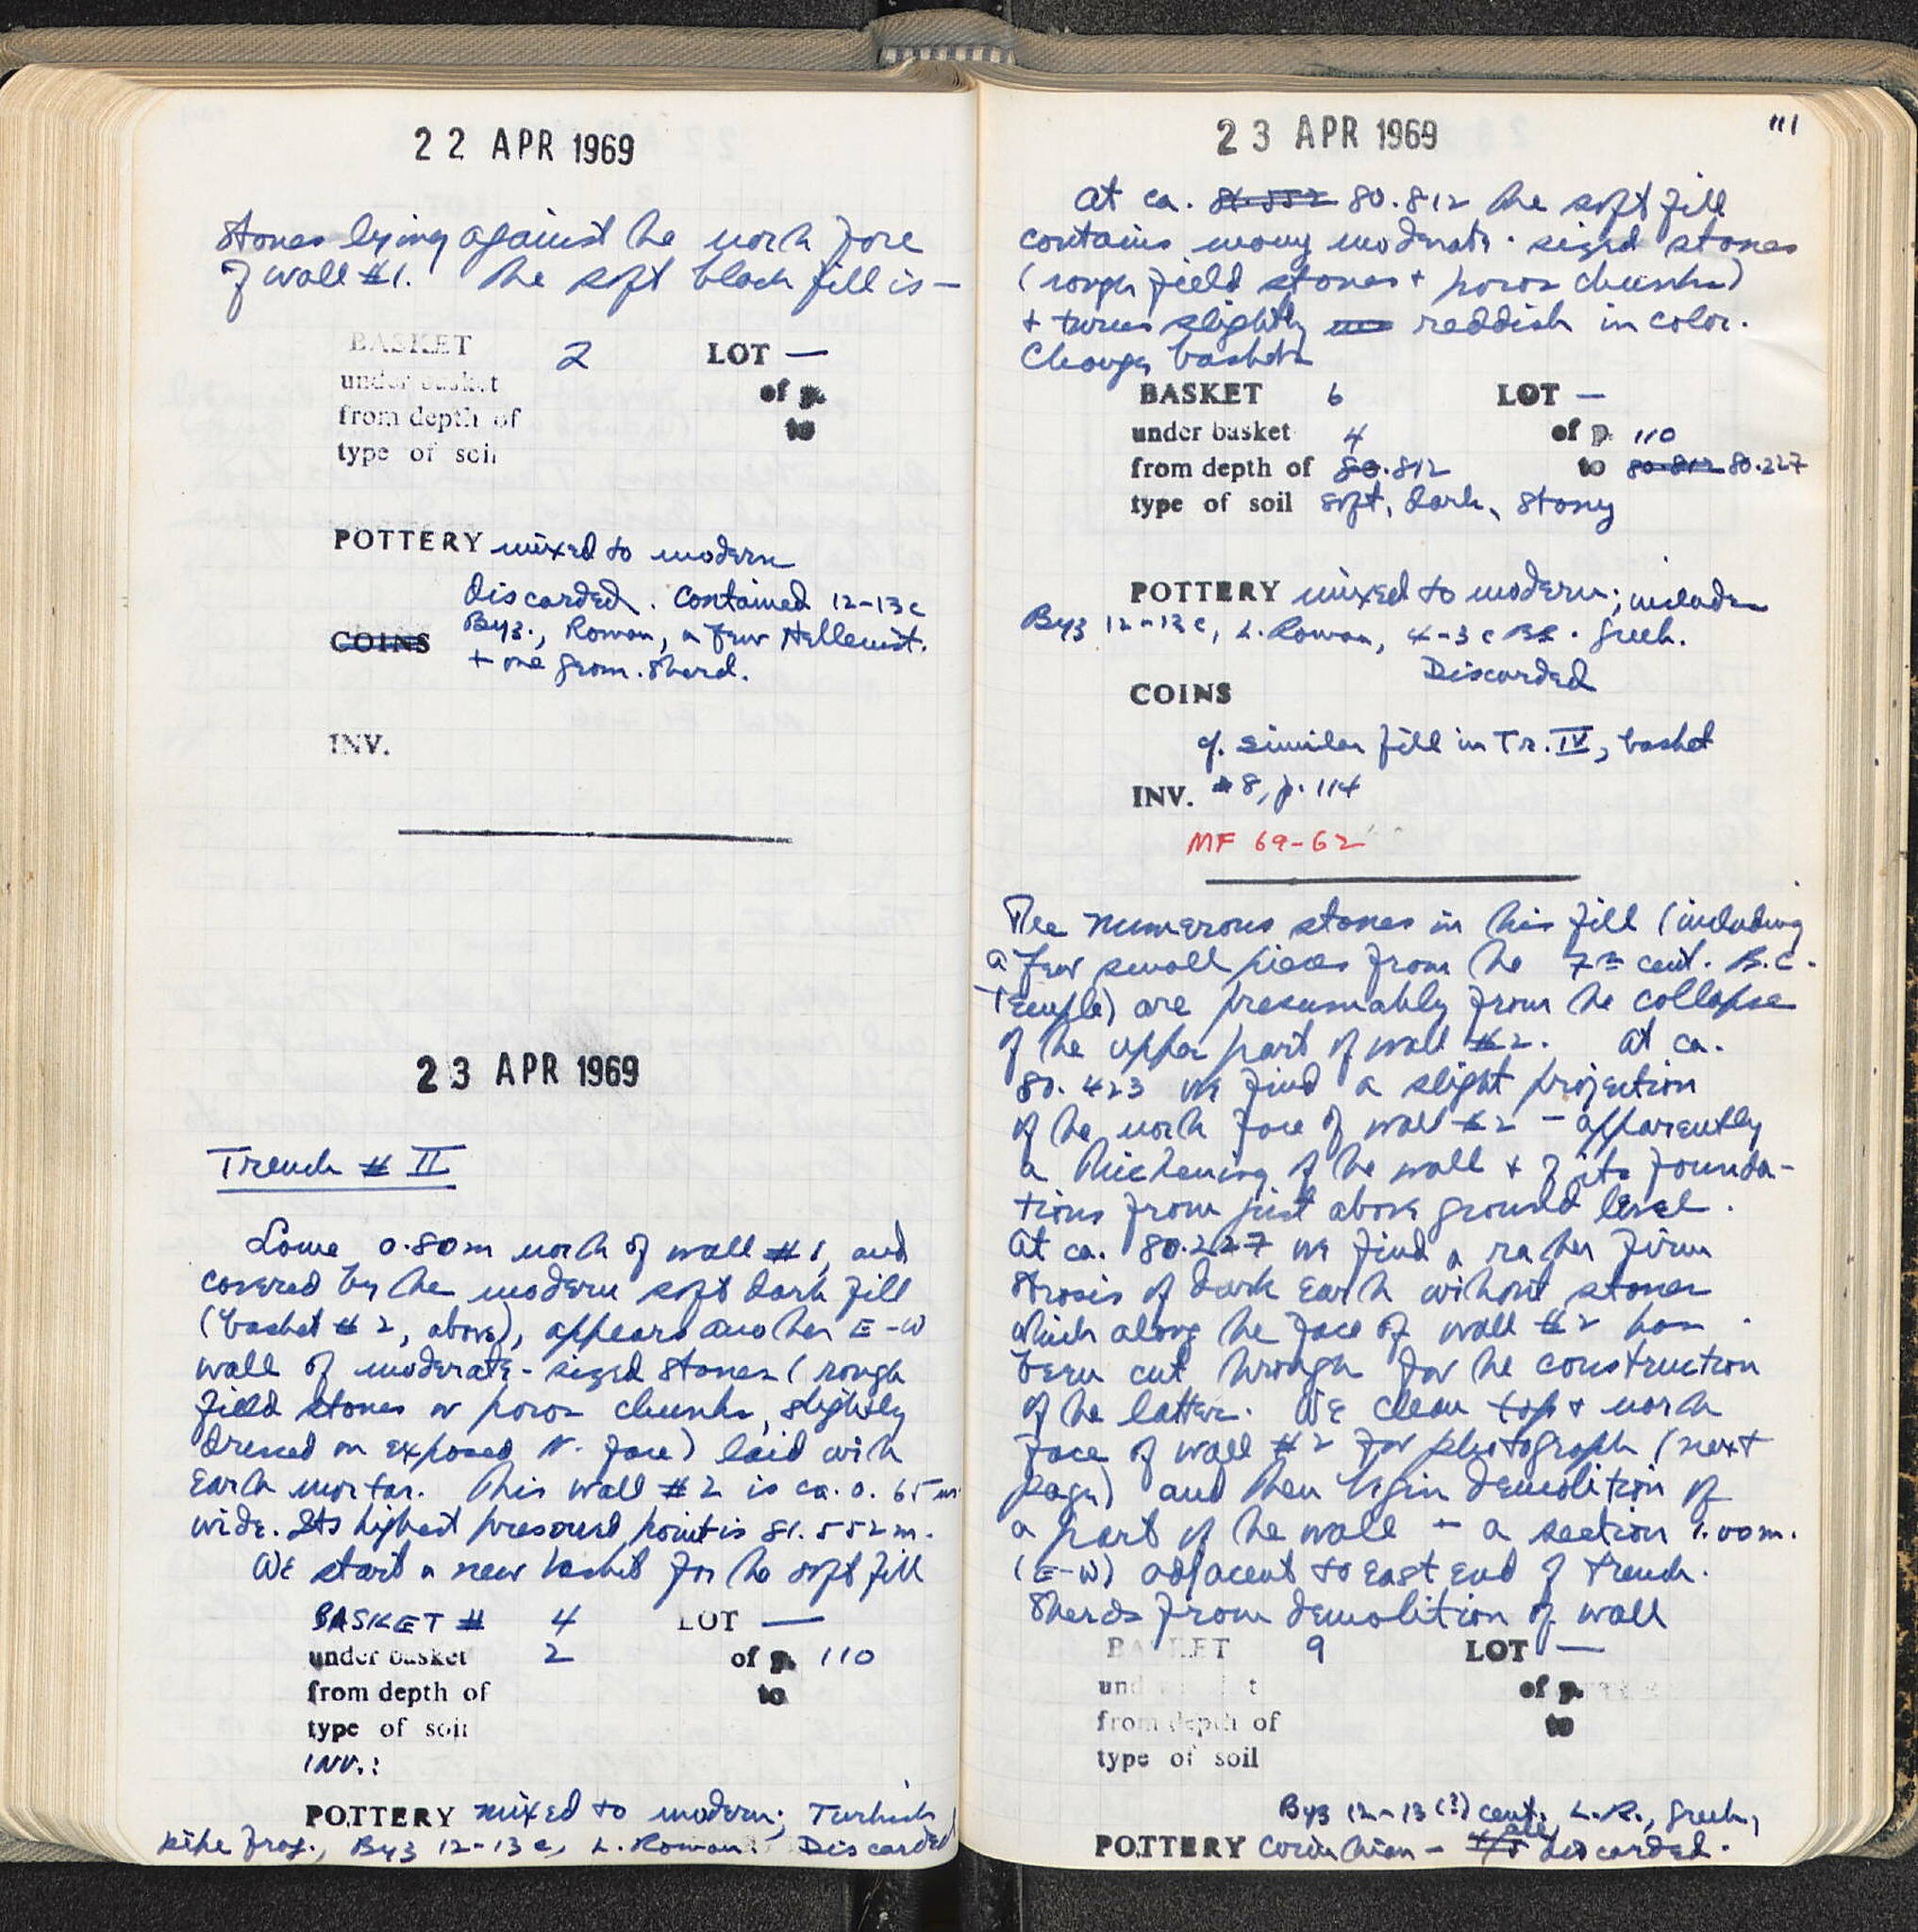 22 APR 1969
stones lying against the north face
of wall #1. The soft black fill is —
BASKET 2 LOT —
under basket of p.
from depth of to
type of soil
POTTERY mixed to modern
discarded. Contained 12-13 c
Byz., Roman, a few Hellenist.
COINS
+ one geom. sherd.
INV.
23 APR 1969
Trench # II
Some 0.80m north of wall #1, and
covered by the modern soft dark fill
(basket #2, above), appears another E-W
wall of moderate-sized stones (rough
field stones or poros chunks, slightly
dressed on exposed N. face) laid with
earth mortar. This wall #2 is ca. 0.65 m.
wide. Its highest preserved point is 81.552 m.
We start a new basket for the soft fill
BASKET # 4 LOT —
under basket 2 of p. 110
from depth of to
type of soil
INV.:
POTTERY mixed to modern; Turkish
pipe frag., Byz 12-13 c, L. Roman. Discarded
23 APR 1969
111
At ca. 81.552 80.812 the soft fill
contains many moderate-sized stones
(rough field stones + poros chunks)
+ turns slightly reddish in color.
Change baskets
BASKET 6 LOT —
under basket 4 of p. 110
from depth of 80.812 to 80.812 80.227
type of soil soft, dark, stony
POTTERY mixed to modern; includes
Byz 12-13 c, L. Roman, 4-3 c BC. Greek.
Discarded
COINS
cf. similar fill in Tr. IV, basket
INV. #8, p. 114
MF 69-62
The numerous stones in this fill (including
a few small pieces from the 7th cent. B.C.
Temple) are presumably from the collapse
of the upper part of wall #2. At ca.
80.423 we find a slight projection
of the north face of wall #2 – apparently
a thickening of the wall + of its founda-
tions from just above ground level.
At ca. 80.227 we find a rather firm
strosis of dark earth without stones
which along the face of wall #2 has
been cut through for the construction
of the latter. We clean top + north
face of wall #2 for photograph (next
page) and then begin demolition of
a part of the wall – a section 1.00m.
(E-W) adjacent to east end of trench.
Sherds from demolition of wall
BASKET 9 LOT —
under basket of p.
from depth of to
type of soil
Byz 12-13 (?) cent., L.R., Greek,
POTTERY Corinthian – all discarded.